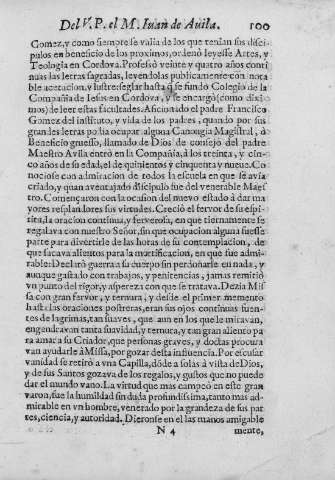 Del V. P. el M. Iuan de Auila. 100
Gomez, y como siempre se valia de los que tenian sus disci-
pulos en beneficio de los proximos, ordenò leyesse Artes, y
Teologia en Cordova. Professò veinte y quatro años conti
nuas las letras sagradas, leyendolas publicamente con nota
ble acetacion, y lustre: seglar hasta q̃ se fundò Colegio de la
Compañia de Iesus en Cordova, y se encargò (como dixi
mos) de leer estas facultades. Aficionado el padre Francisco
Gomez del instituto, y vida de los padres, quando por sus
grandes letras podia ocupar alguna Canongia Magistral, ò
Beneficio gruesso, llamado de Dios de consejo del padre
Maestro Avila entrò en la Compañia, à los treinta, y cin-
co años de su edad, el de quinientos y cinquenta y nueue. Co
nociose con admiracion de todos la escuela en que se avia
criado, y quan aventajado discipulo fue del venerable Maes
tro. Començaron con la ocasion del nuevo estado à dar ma
yores resplandores sus virtudes. Creciò el fervor de su espi-
ritu, la oracion continua, y fervorosa, en que tiernamente se
regalava con nuestro Señor, sin que ocupacion alguna fuesse
parte para divertirle de las horas de su contemplacion, de
que sacava alientos para la mortificacion, en que fue admi-
rable. Declarò guerra a su cuerpo sin perdonarle en nada, y
aunque gastado con trabajos, y penitencias, jamas remitiò
vn punto del rigor, y aspereza con que se tratava. Dezia Mis
sa con gran fervor, y ternura, y desde el primer memento
hasta las oraciones postreras, eran sus ojos continuas fuen-
tes de lagrimas, tan suaves, que aun en los que le miravan,
engendravan tanta suavidad, y ternura, y tan gran aliento pa
ra amar a su Criador, que personas graves, y doctas procura
van ayudarle à Missa, por gozar desta influencia. Por escusar
vanidad se retirò a vna Capilla, dõde a solas à vista de Dios,
y de sus Santos gozava de los regalos, y gustos que no puede
dar el mundo vano. La virtud que mas campeò en este gran
varon, fue la humildad sin duda profundissima, tanto mas ad-
mirable en vn hombre, venerado por la grandeza de sus par
tes, ciencia, y autoridad. Dieronse en el las manos amigable
N 4 mente,